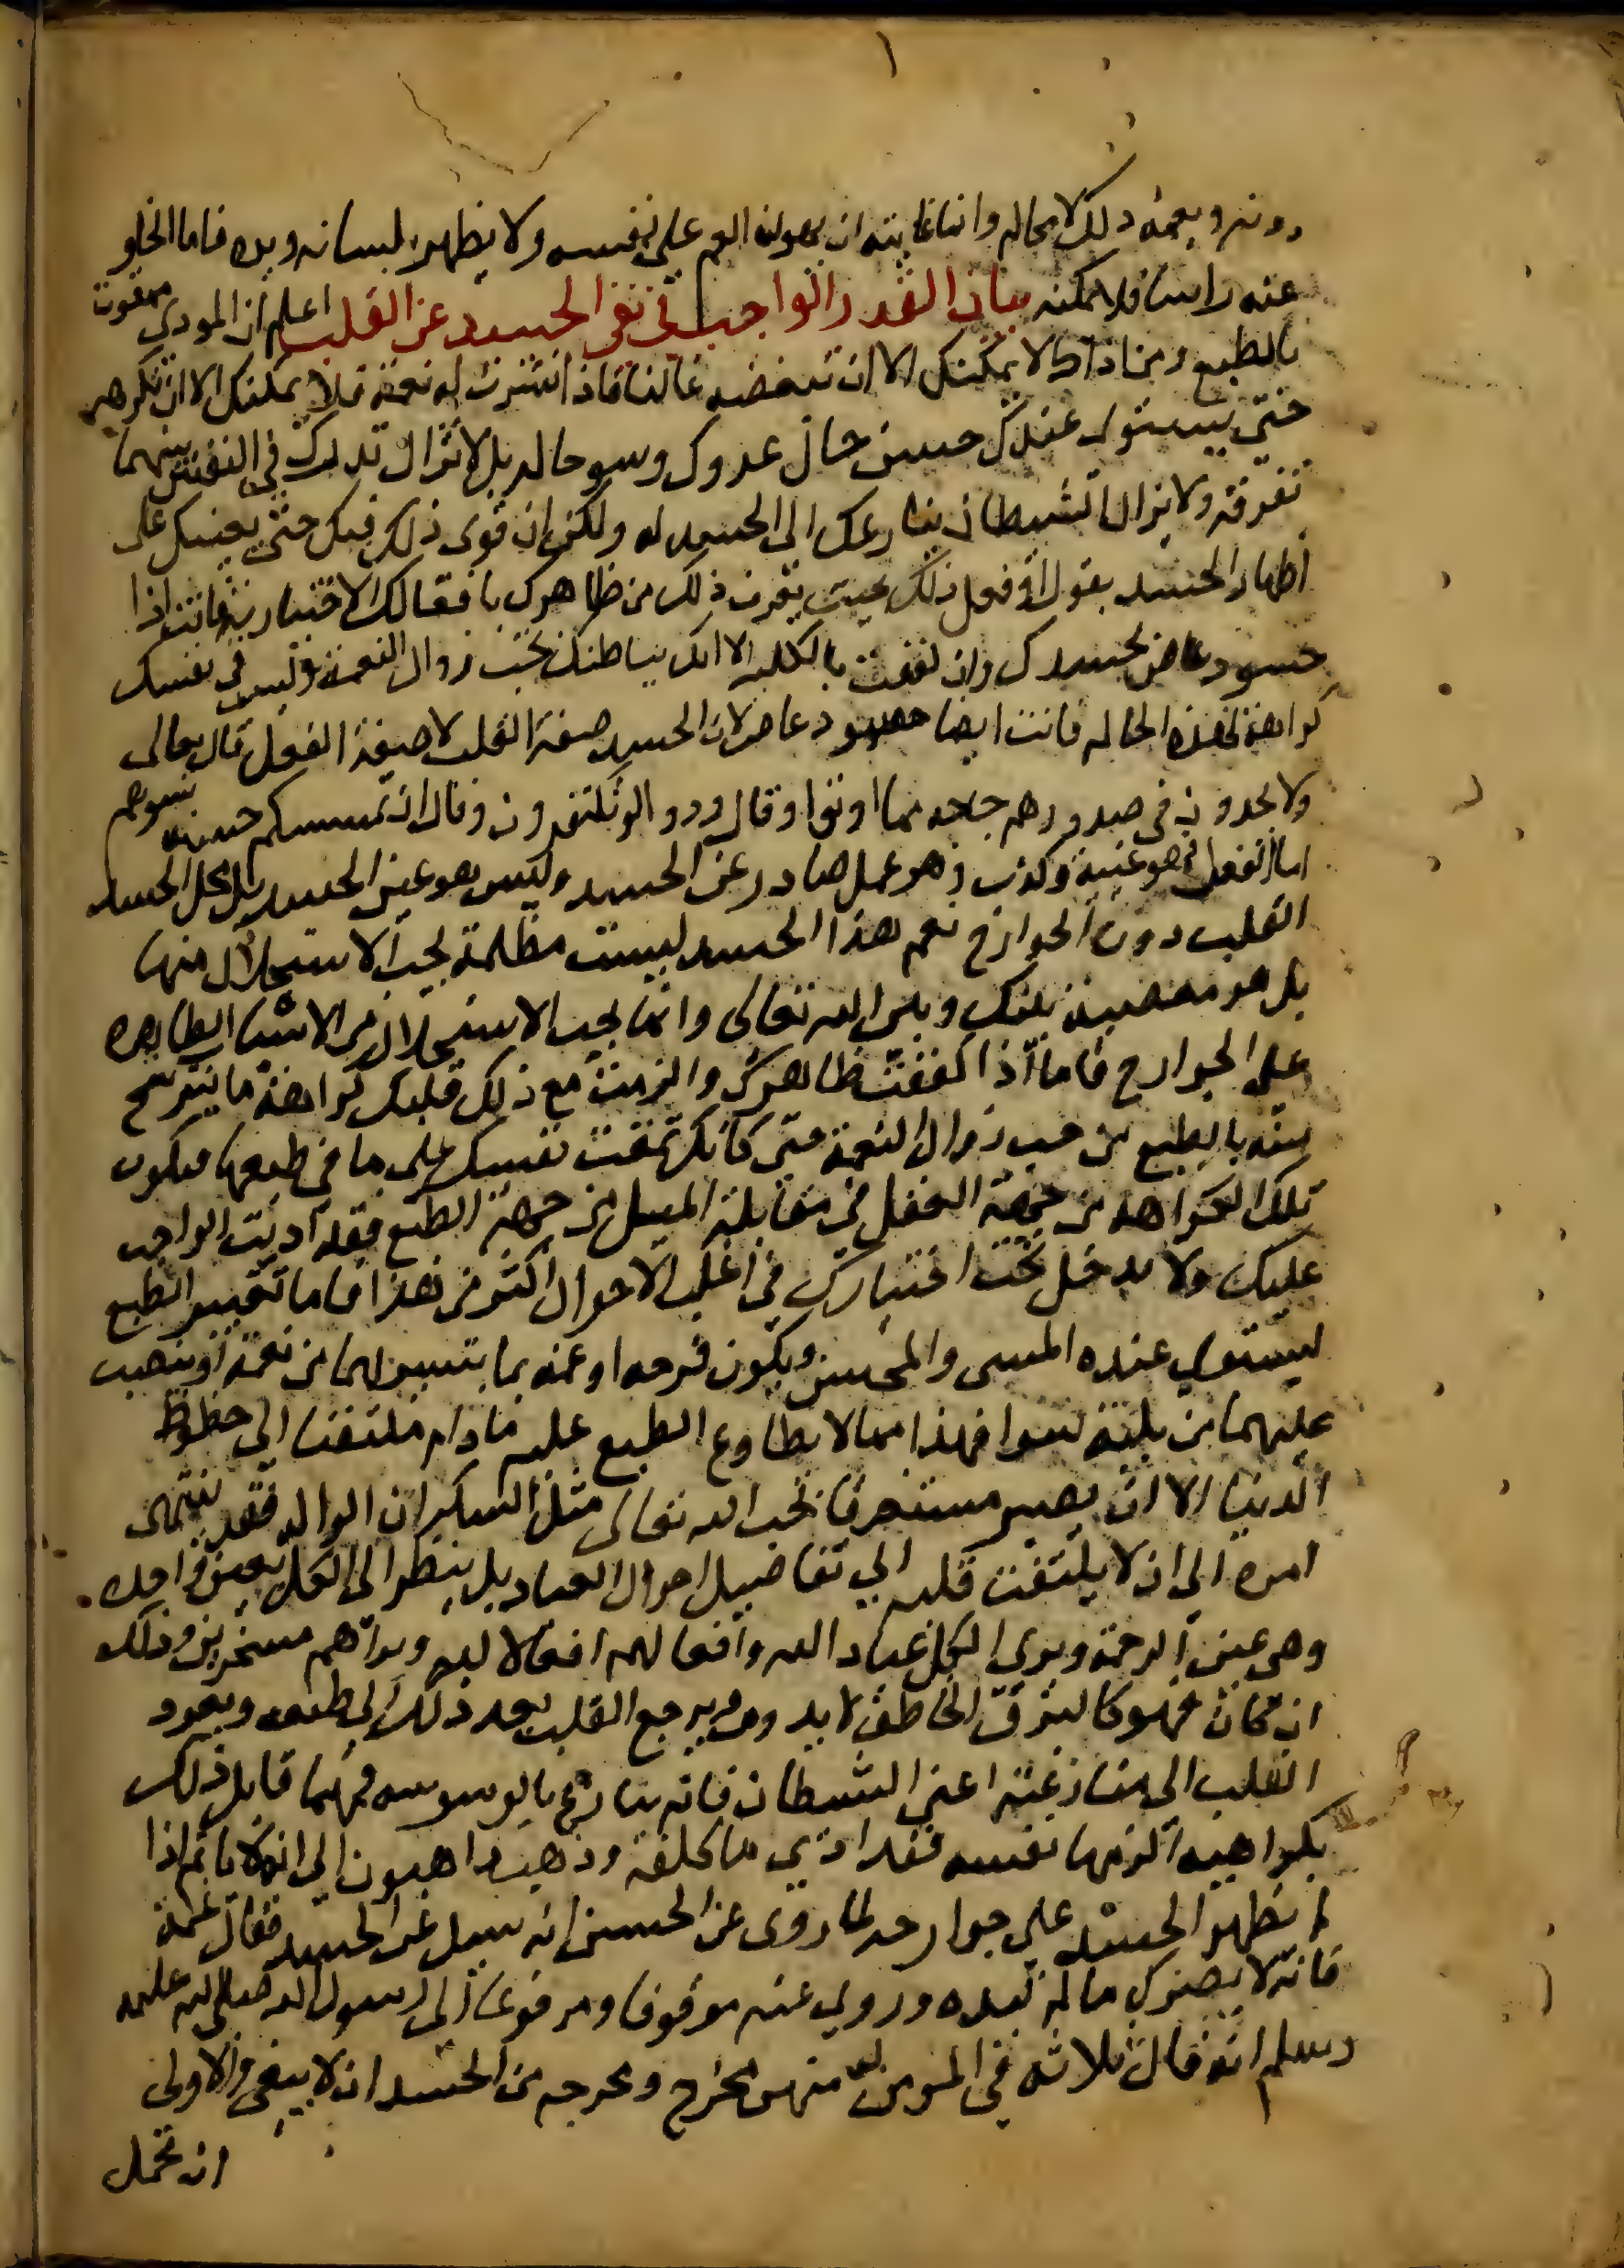 ١
دونه ويغمه ذلك لا محاله وانما غايته ان يهون الغم على نفسه ولا يظهر بلسانه ويده فاما الخلو
عنه راسا فلا يمكنه بيان القدر الواجب في نفي الحسد عن القلب اعلم ان الموذي ممقوت
بالطبع ومن اذاك لا يمكنك الا ان تبغضه غالبا فاذا تيسرت له نعمة فلا يمكنك الا ان تكرهه
حتى يستوي عندك حسن حال عدوك وسو حاله بل لا تزال تدرك في النفس بينهما
تفرقة ولا يزال الشيطان ينازعك الى الحسد له ولكن ان قوى ذلك فيك حتى يعينك على
اظهار الحسد بقول او فعل ذلك بحيث يعرف ذلك من ظاهرك بافعالك الاختيارية فانت اذا
حسود عاص بحسدك وان كففت بالكلية الا انك بباطنك تحب زوال النعمة وليس في نفسك
كراهة لهذه الحاله فانت ايضا حسود عاص لان الحسد صفة القلب لا صفة الفعل قال تعالى
ولا يجدون في صدورهم حاجه مما اوتوا وقال ودوا لو تكفرون وقال ان تمسسكم حسنه تسوهم
اما الفعل فهو غيبة وكذب وهو عمل صادر عن الحسد وليس هو عين الحسد بل محل الحسد
القلب دون الجوارح نعم هذا الحسد ليست مظلمة يجب الاستحلال منها
بل هو معصية بينك وبين الله تعالى وانما يجب الاستحلال من الاشيا الظاهره
على الجوارح فاما اذا كففت ظاهرك والزمت مع ذلك قلبك كراهة ما يترشح
منه بالطبع من حب زوال النعمة حتى كانك تمقت نفسك على ما في طبعها فيكون
تلك الكراهة من جهة العقل في مقابلة الميل من جهة الطبع فقد اديت الواجب
عليك ولا يدخل تحت اختيارك في اغلب الاحوال اكثر من هذا فاما تغيير الطبع
ليستوي عنده المسى والمحسن ويكون فرحه او غمه بما يتيسر لهما من نعمة او ينصب
عليهما من بلية سوا فهذا مما لا يطاوع الطبع عليه مادام ملتفتا الى حظوظ
الدنيا الا ان يصير مستغرقا بحب الله تعالى مثل السكران الواله فقد ينتهى
امره الى ان لا يلتفت قلبه الي تفاصيل احوال العباد بل ينظر الى الكل بعين واحده
وهي عين الرحمة ويرى الكل عباد الله وافعالهم افعالا لله ويراهم مسخرين وذلك
ان كان فهو كالبرق الخاطف لا يدوم ويرجع القلب بعد ذلك الى طبعه ويعود
القلب الى منازعته اعني الشيطان فانه ينازع بالوسوسه فمهما قابل ذلك
بكراهية الزمها نفسه فقد ادي ما كلفه وذهب ذاهبون الى انه لا ياثم اذا
لم يظهر الحسد على جوارحه لما روى عن الحسن انه سيل عن الحسد فقال غمه
فانه لا يضرك ما لم تبده وروي عنه موقوفا ومرفوعا الى رسول الله صلى الله عليه
وسلم انه قال ثلاثه في المومن له منهن مخرج ومخرجه من الحسد ان لا يبغى والاولى
ان تحمل